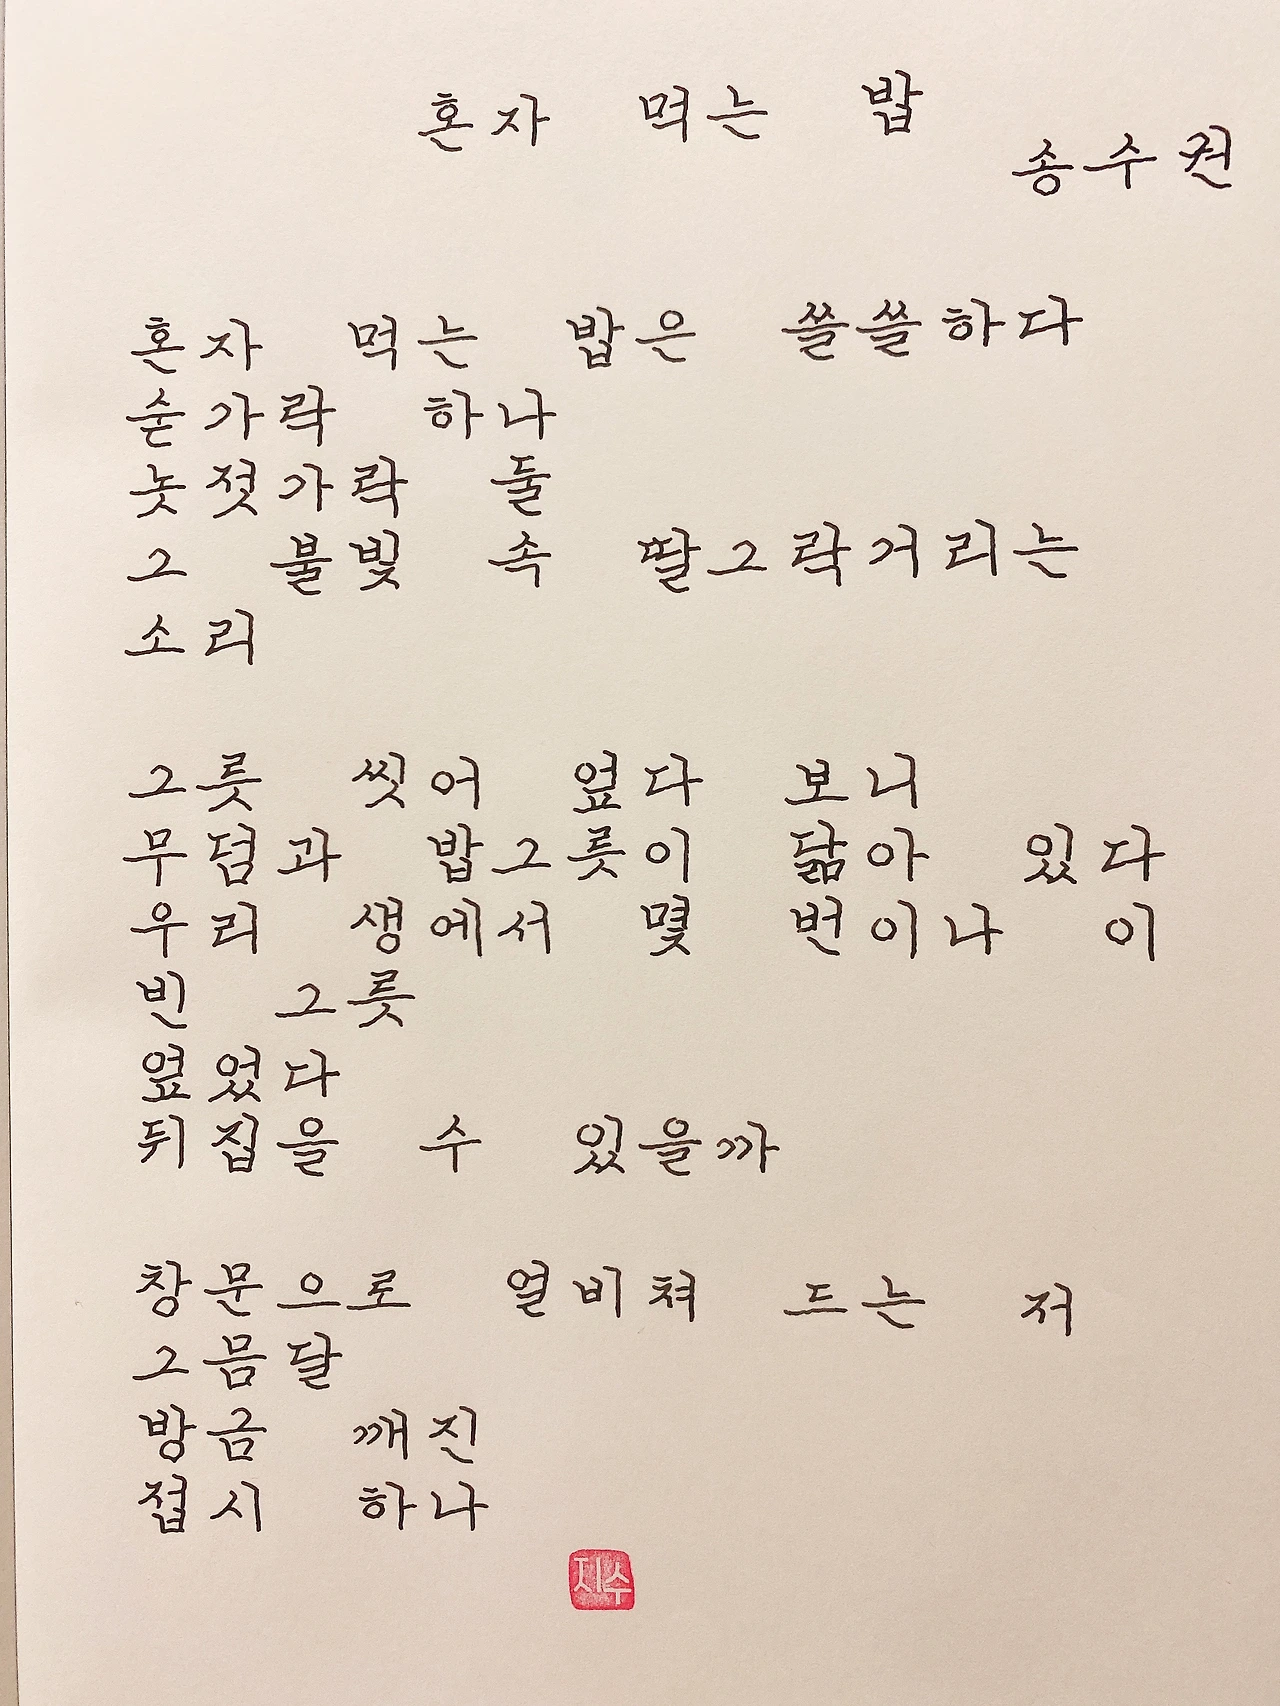 혼자 먹는 밥
송수권
혼자 먹는 밥은 쓸쓸하다
숟가락 하나
놋젓가락 둘
그 불빛 속 딸그락거리는
소리
그릇 씻어 엎다 보니
무덤과 밥그릇이 닮아 있다
우리 생에서 몇 번이나 이
빈 그릇
엎었다
뒤집을 수 있을까
창문으로 얼비쳐 드는 저
그믐달
방금 깨진
접시 하나
지수